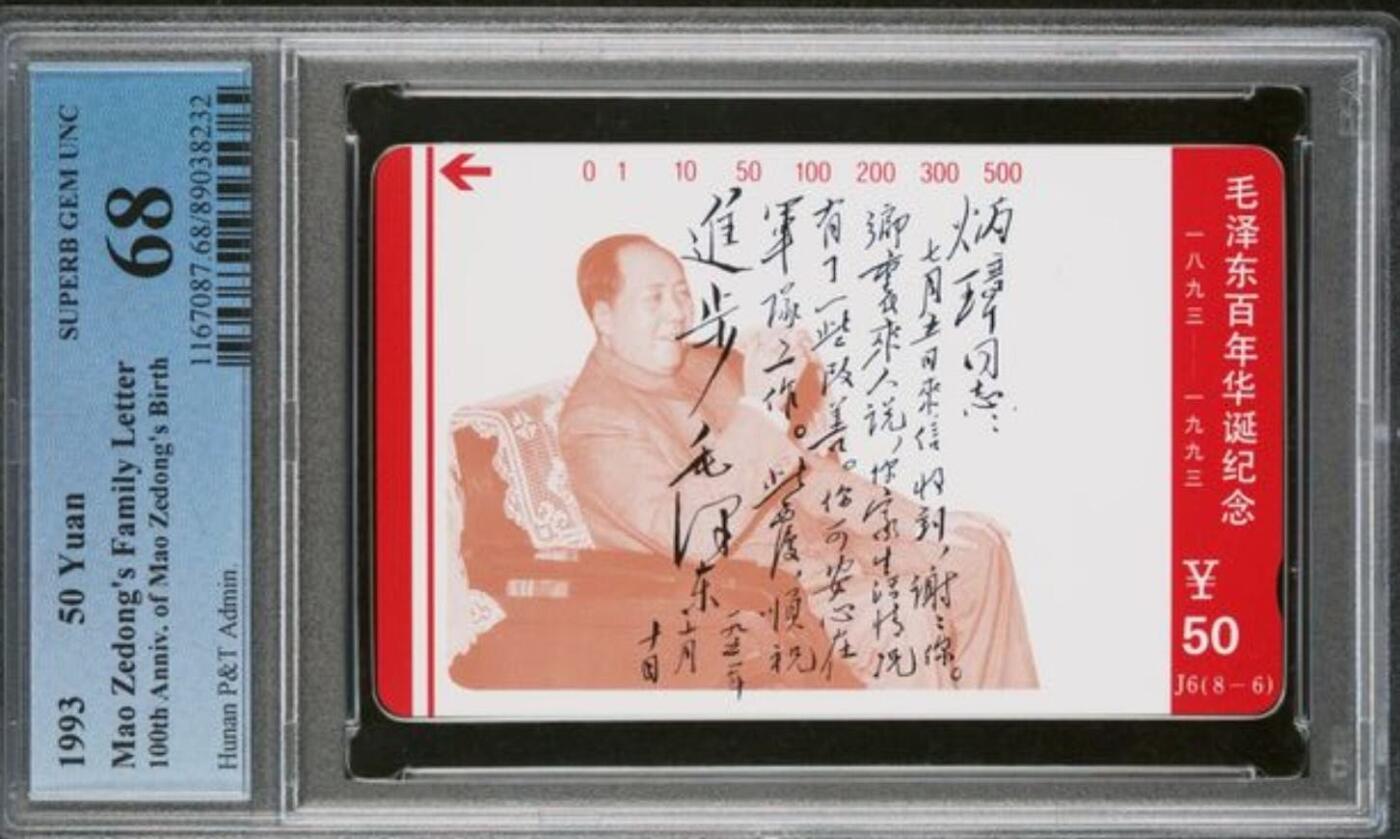 1993 50 Yuan SUPERB GEM UNC
Mao Zedong's Family Letter 68
100th Anniv. of Mao Zedong's Birth
Hunan P&T Admin. 1167087.68/89038232
0 1 10 50 100 200 300 500
毛泽东百年华诞纪念
一八九三——一九九三
¥
50
J6(8-6)
炳璋同志:
七月五日來信收到,謝〻你。
鄉裏來人說,你家生活情况
有了一些改善。你可安心在
軍隊工作。此復,順祝
進步
毛澤東
一九五二年
月
十日